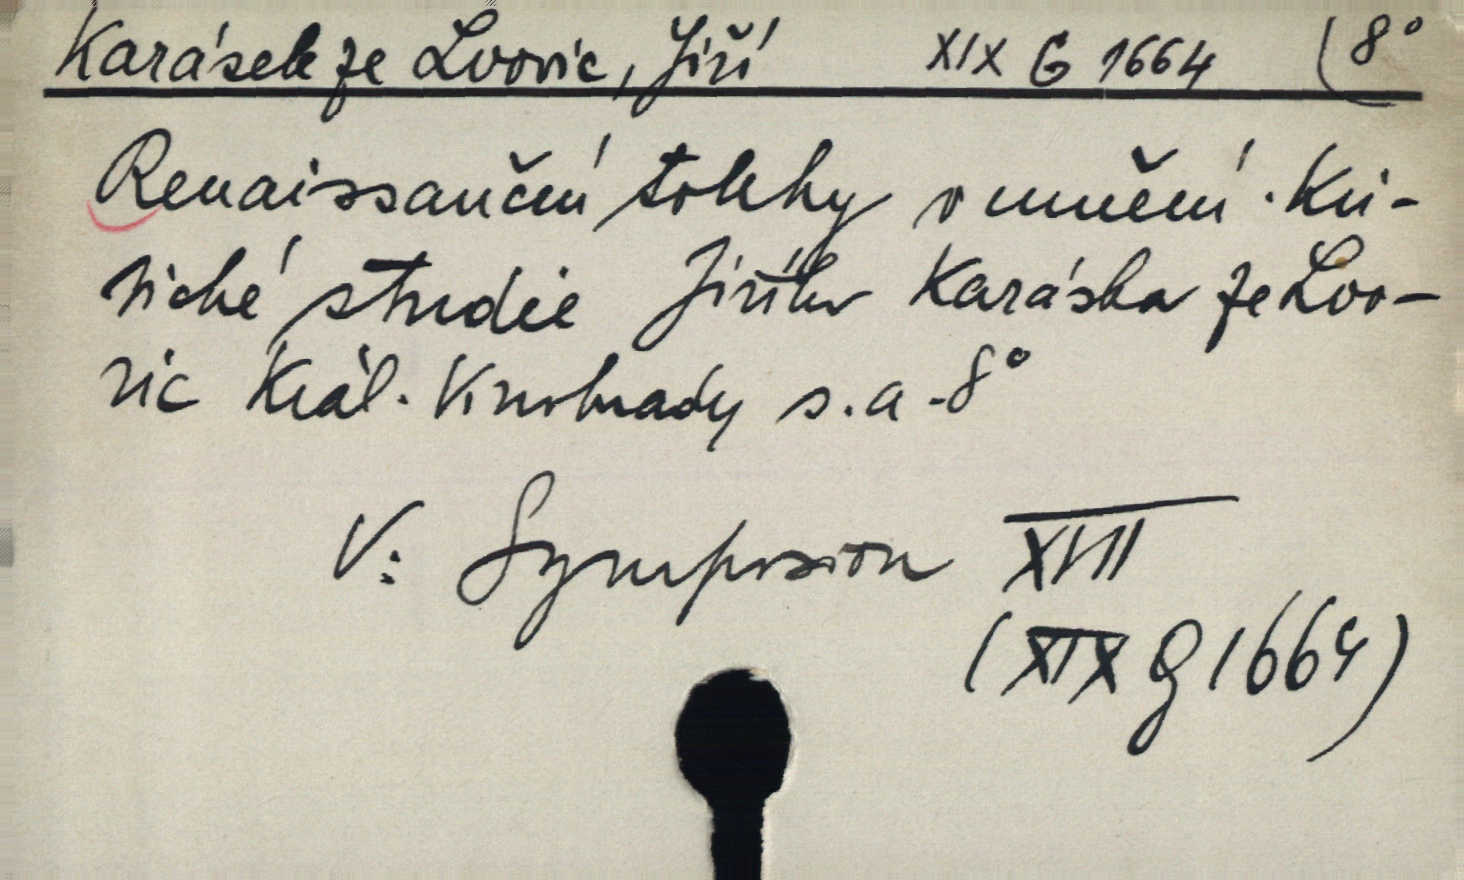 Karásek ze Lvovic, Jiří XIX G 1664 (8°
Renaissanční touhy v umění. Kri-
tické studie Jiřího Karáska ze Lvo-
vic Král. Vinohrady s.a. 8°
V: Symposion XVII
(XIX G 1664)